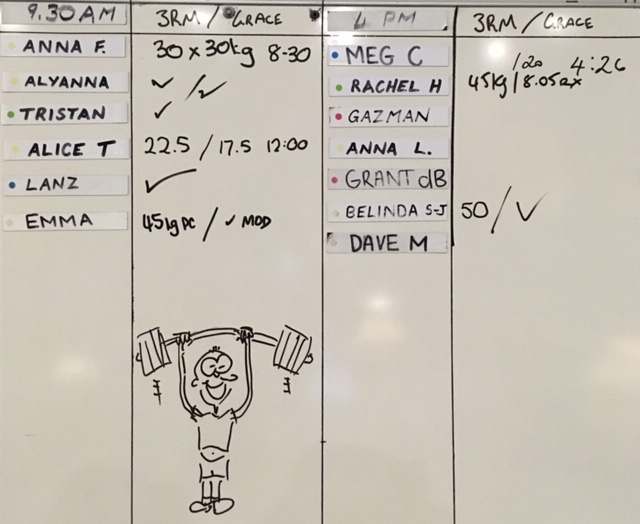 9.30AM 3RM / GRACE
ANNA F. 30 x 30kg 8-30
ALYANNA ✓ / ✓
TRISTAN ✓
ALICE T 22.5 / 17.5 12:00
LANZ ✓
EMMA 45kg PC / ✓ MOD
4 PM 3RM / GRACE
MEG C /20 4:26
RACHEL H 45kg / 8.05
GAZMAN
ANNA L.
GRANT dB
BELINDA S-J 50 / ✓
DAVE M